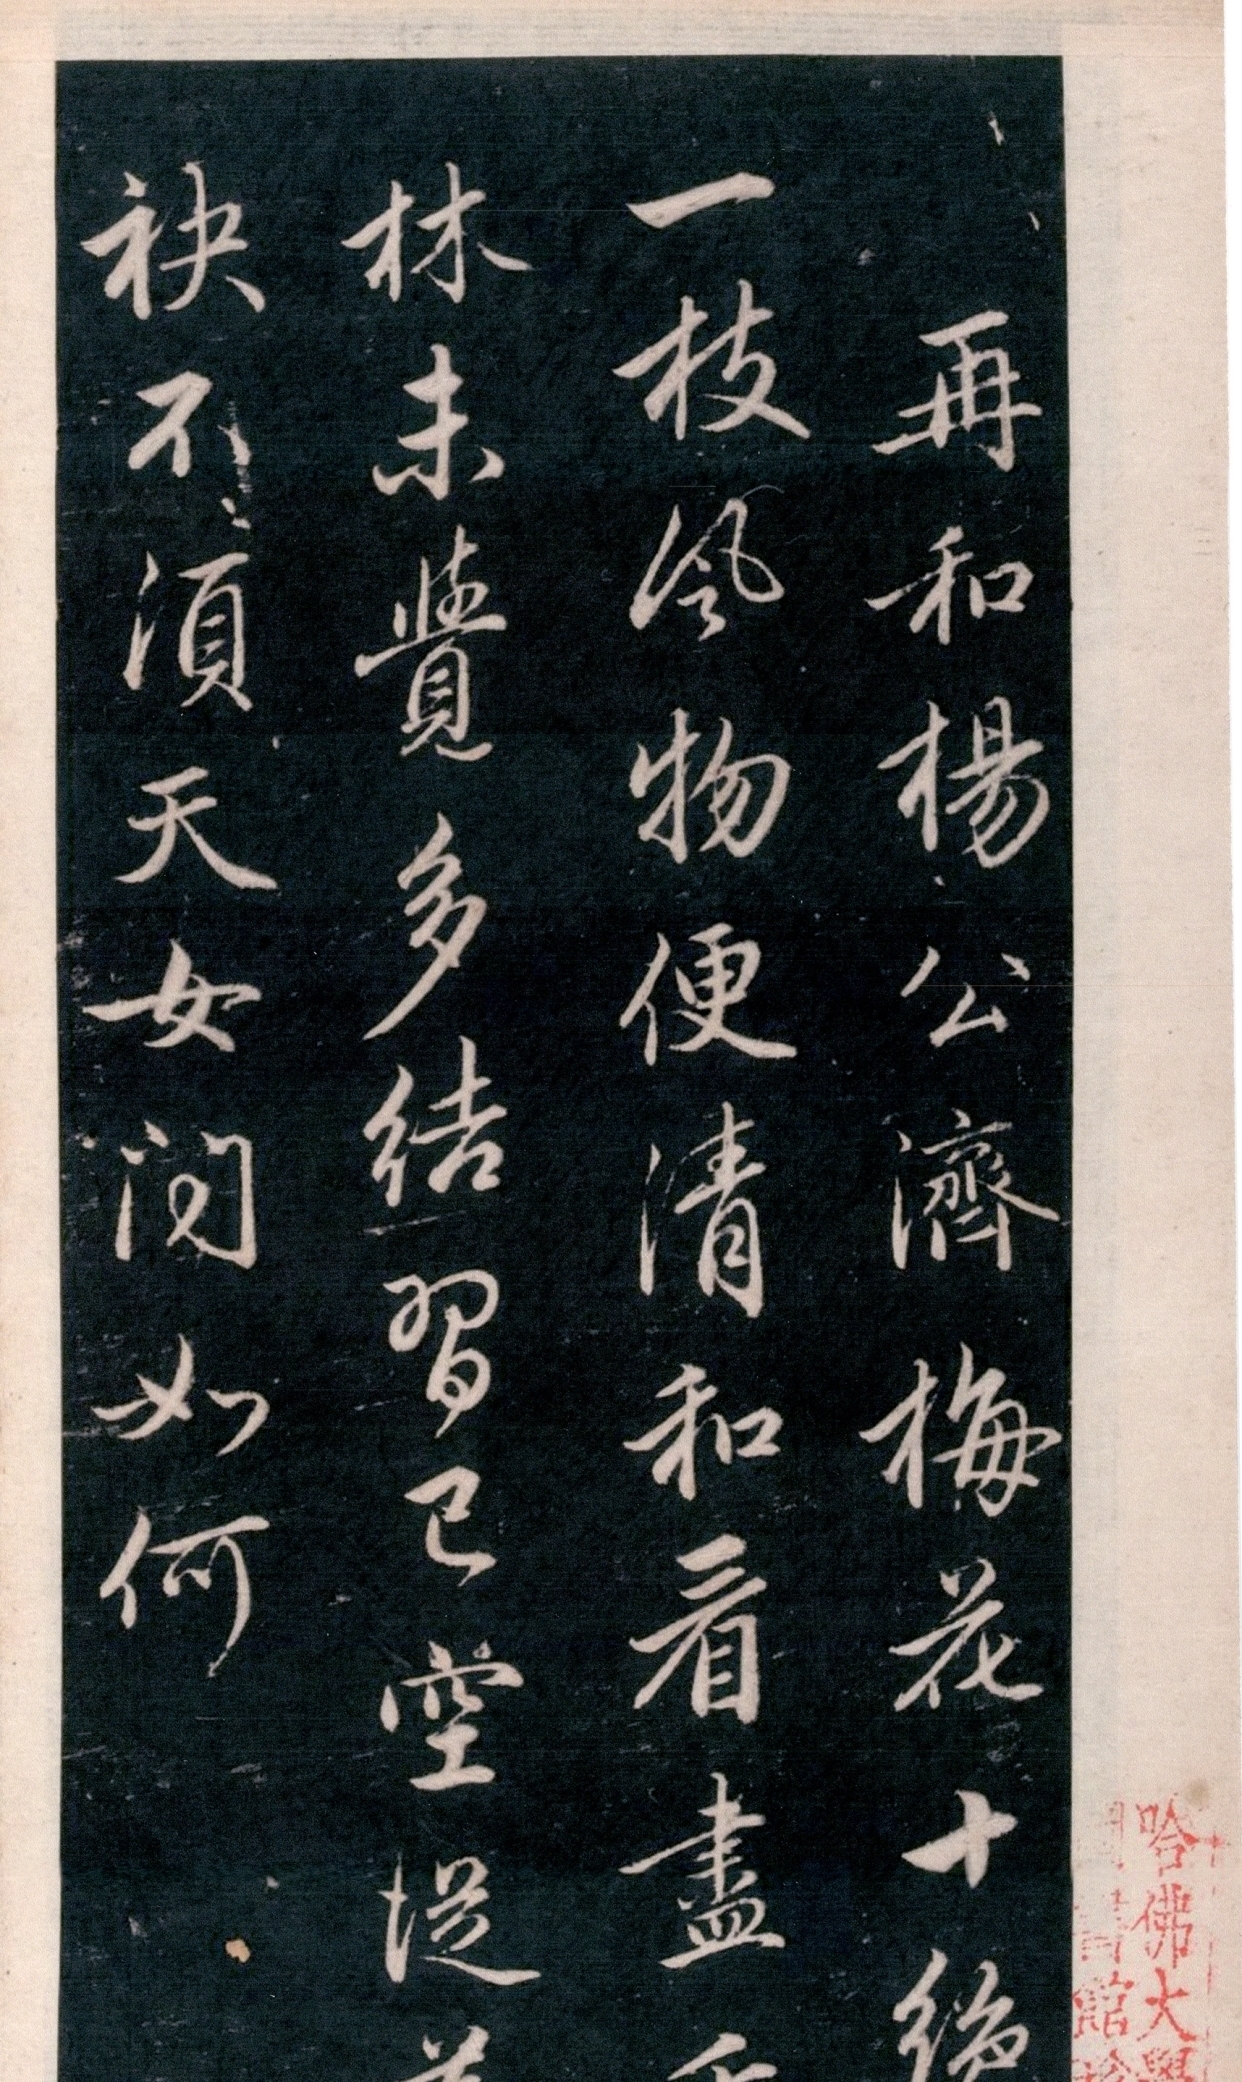 哈佛大學
圖書館
再和楊公濟梅花十絕
一枝風物便清和看盡
林未覺多結習已空從
袂不須天女問如何